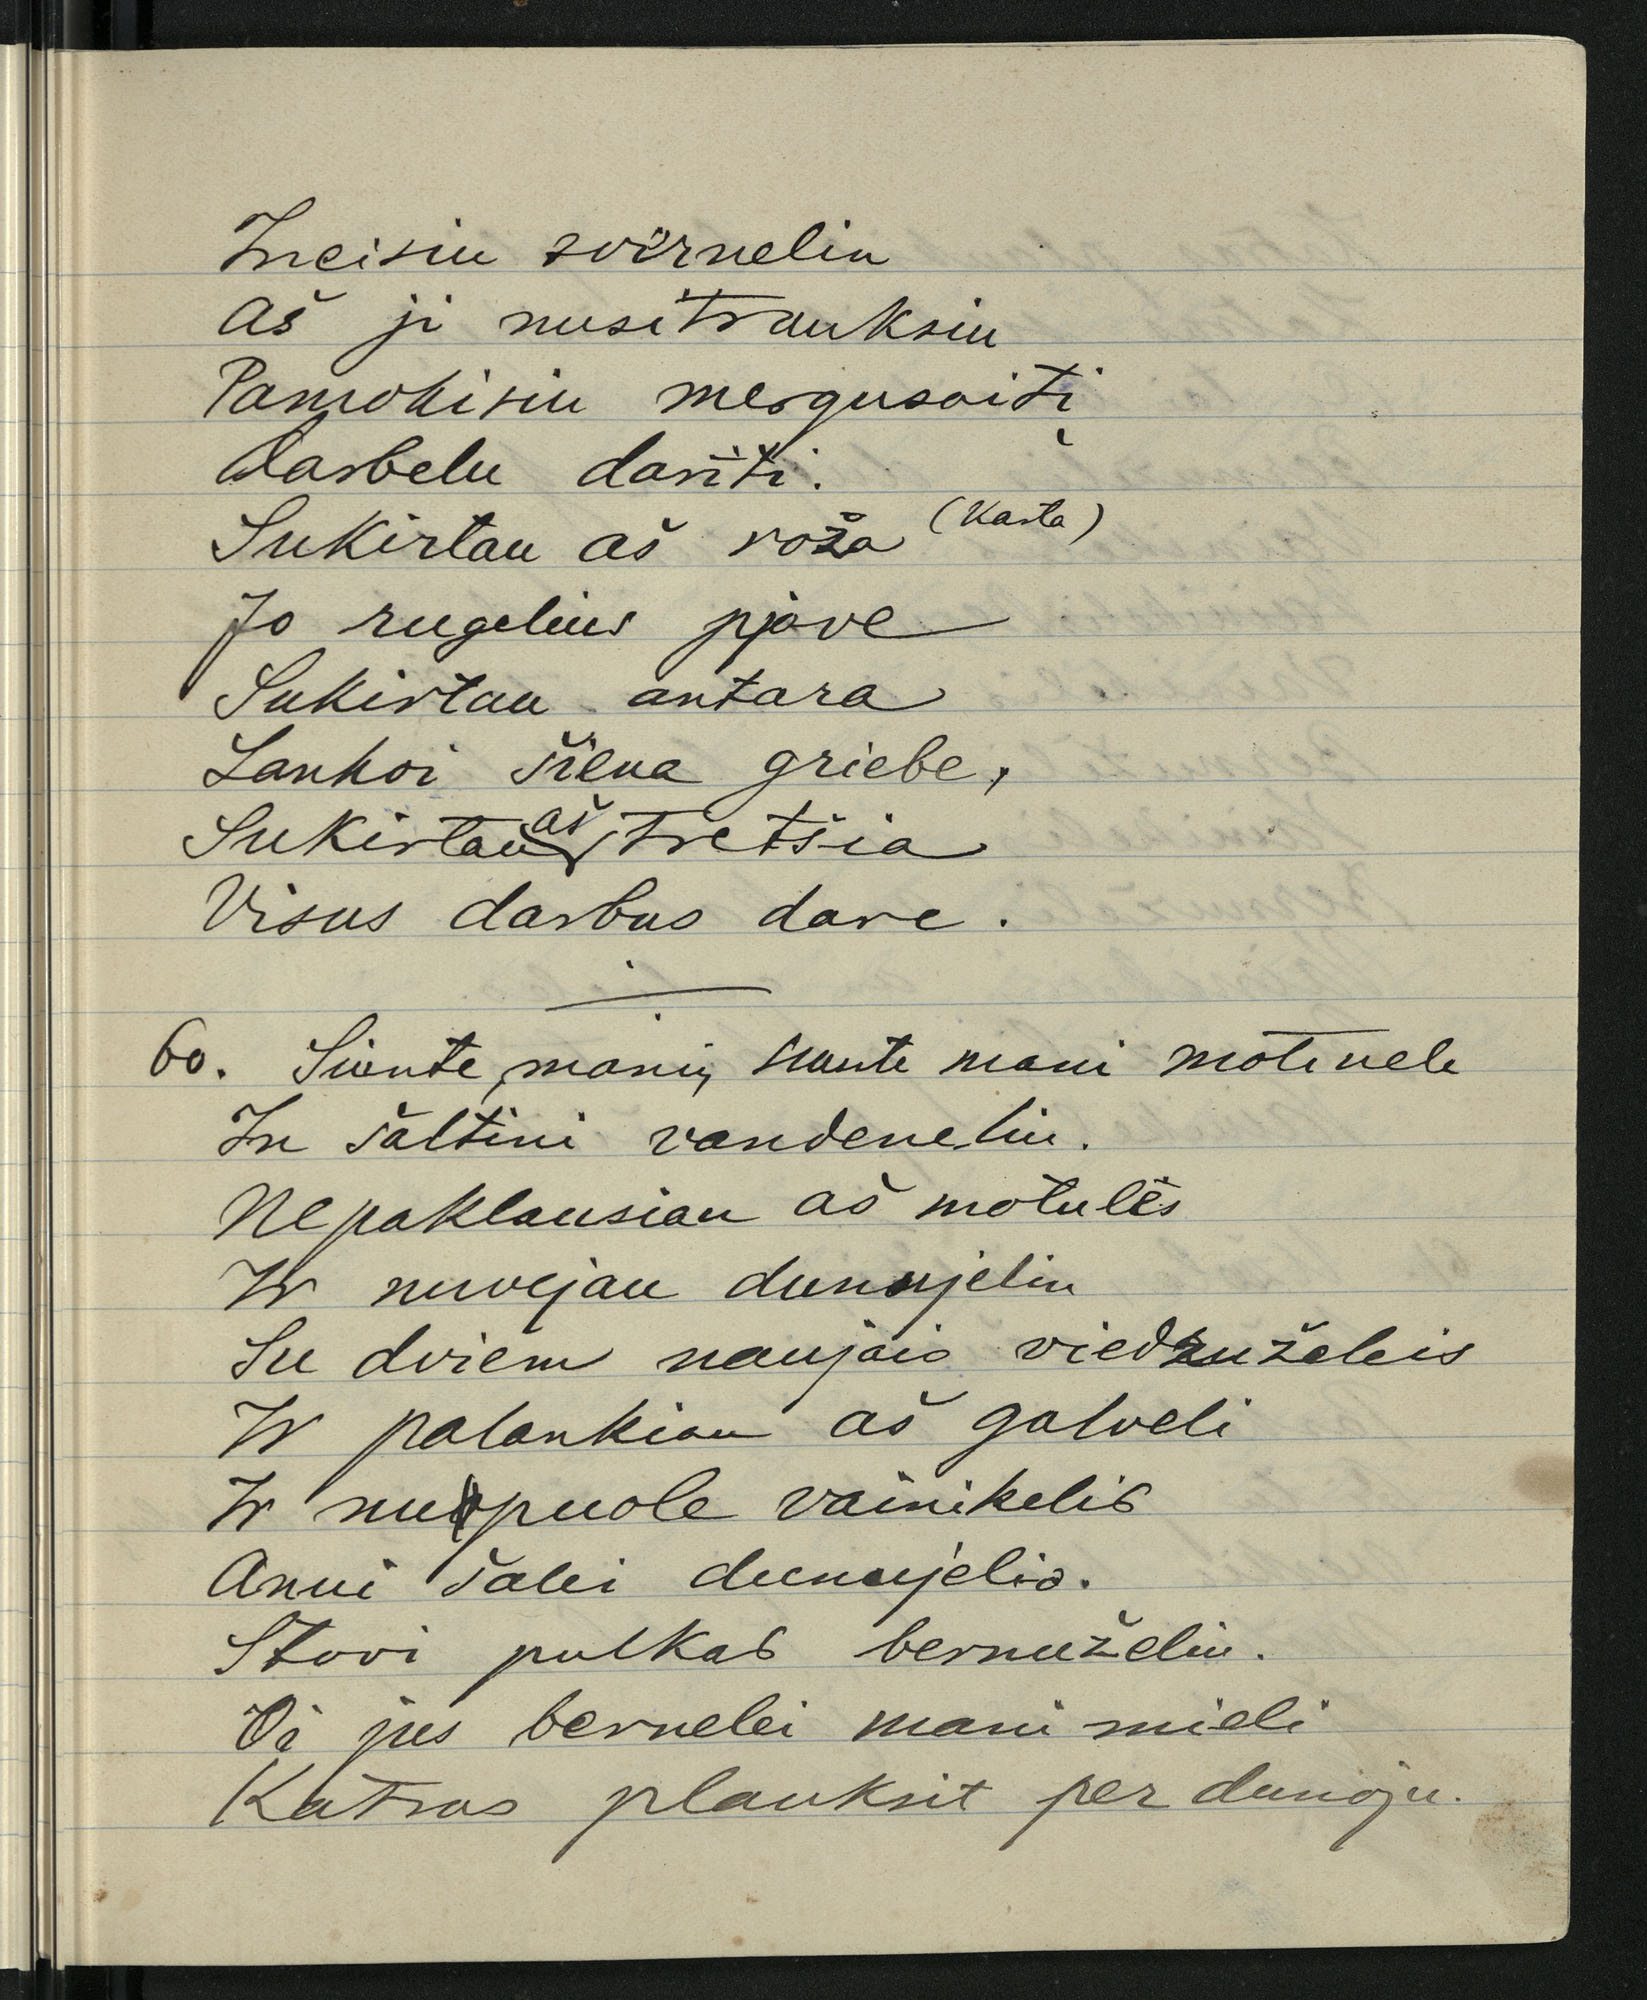 Ineisiu svirnelin
Aš ji nusitrauksiu
Pamokisiu mergusaiti
Darbelu dariti.
Sukirtau aš roža (Karta)
Jo rugelius pjove
Sukirtau antara
Lankoi šiena griebe,
Sukirtau aš tretšia
Visus darbus dare.
60. Siunte mani, siunte mani motinele
In šaltini vandenelin.
Nepaklausiau aš motulės
Ir nuvejau dunojelin
Su dviem naujais viedruželeis
Ir palankiau aš galveli
Ir nupuole vainikelis
Anui šalei dunojelio.
Stovi pulkas bernuželiu.
Oi jus bernelei mani mieli
Katras plauksit per dunoju.